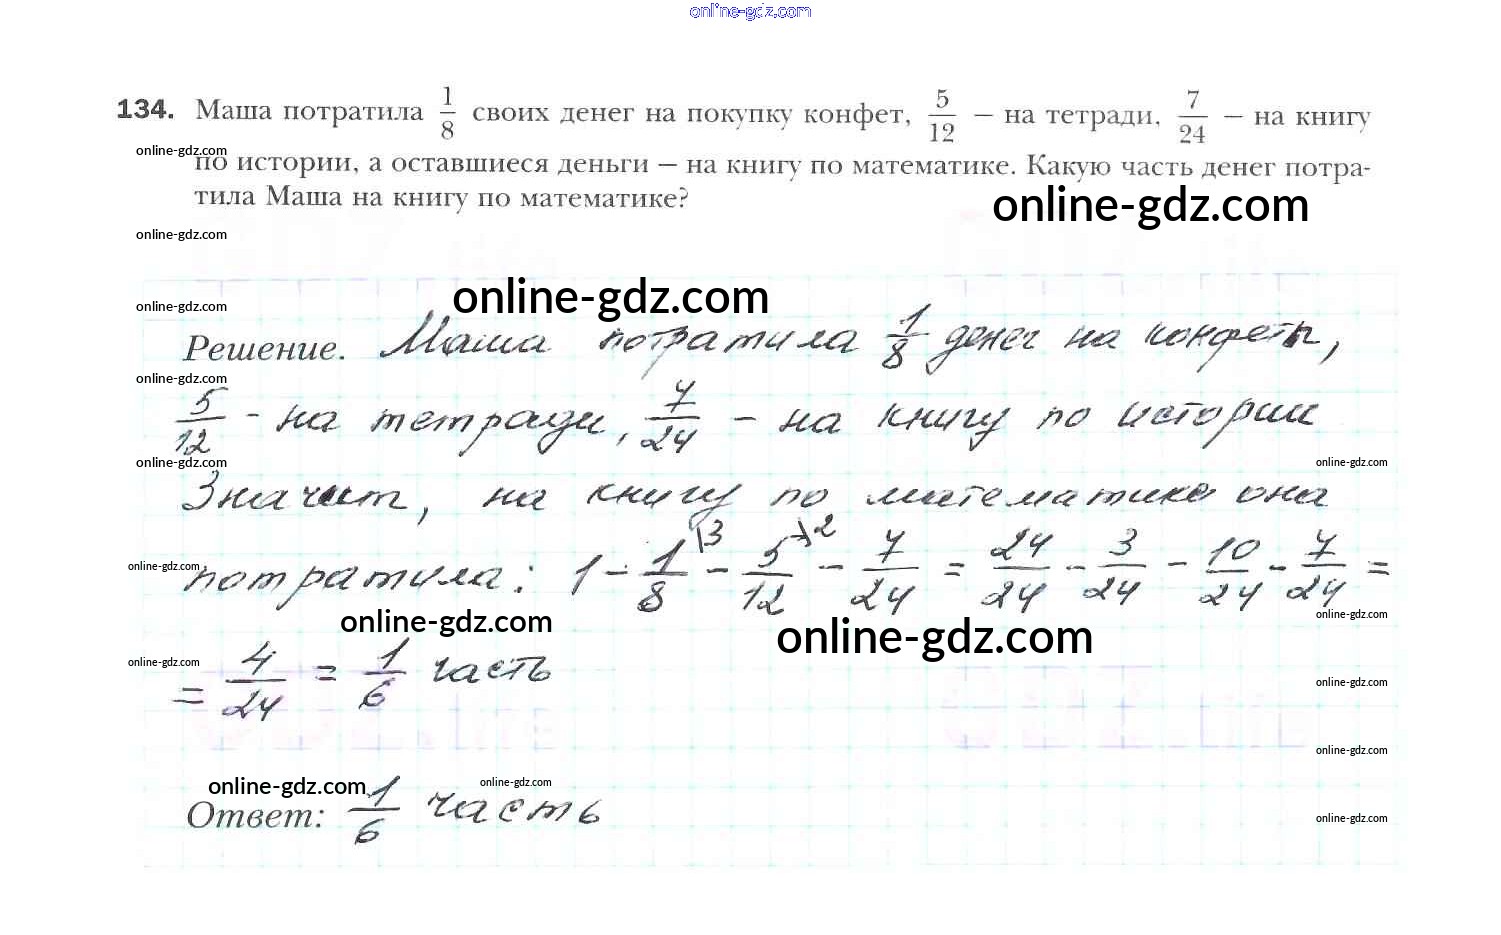 online-gdz.com
134. Маша потратила 1/8 своих денег на покупку конфет, 5/12 — на тетради, 7/24 — на книгу
online-gdz.com
по истории, а оставшиеся деньги — на книгу по математике. Какую часть денег потра-
тила Маша на книгу по математике?
online-gdz.com
online-gdz.com
online-gdz.com
online-gdz.com
Решение. Маша потратила 1/8 денег на конфеты,
online-gdz.com
5/12 - на тетради, 7/24 - на книгу по истории
online-gdz.com
online-gdz.com
Значит, на книгу по математике она
online-gdz.com
потратила: 1 - 1/8 \3 - 5/12 \2 - 7/24 = 24/24 - 3/24 - 10/24 - 7/24 =
online-gdz.com
online-gdz.com
online-gdz.com
online-gdz.com
= 4/24 = 1/6 часть
online-gdz.com
online-gdz.com
online-gdz.com
online-gdz.com
Ответ: 1/6 часть
online-gdz.com